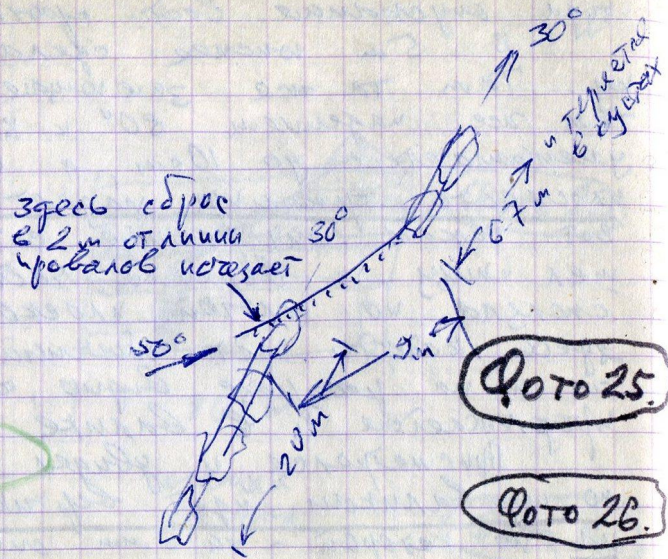 30°
и теряется
в кустах
6-7 м
Здесь сброс
в 2 м от линии
провалов исчезает
30°
50°
9м
20 м
Фото 25.
Фото 26.